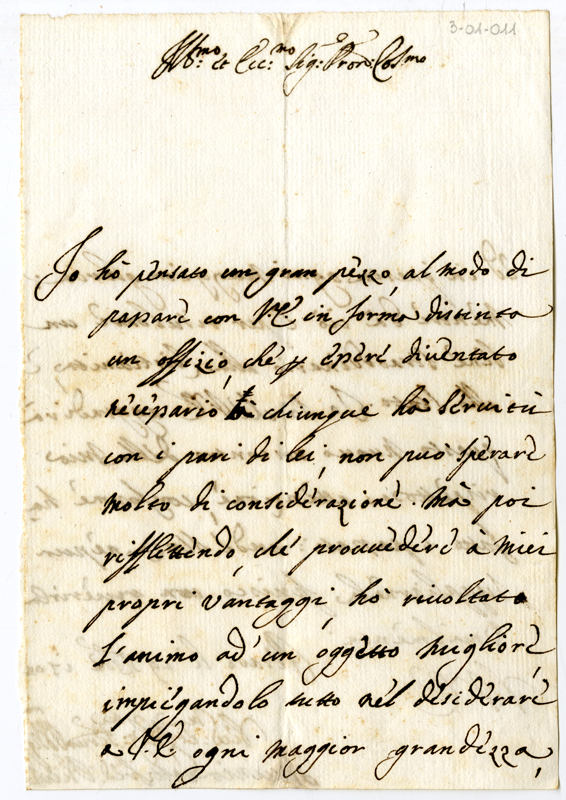 3-01-011
Ill:mo et Ecc:mo Sig: Pron: Col:mo
Io hò pensato un gran pezzo, al modo di
passare con V.E. in forma distinta
un offizio, che p essere diventato
necessario à chiunque hà servitù
con i pari di lei, non può sperare
molto di considerazione. Mà poi
rifflettendo, che provvedere à miei
propri vantaggi, hò rivoltato
l'animo ad' un oggetto migliore,
impiegandolo tutto nel desiderare
a V.E. ogni maggior grandezza,